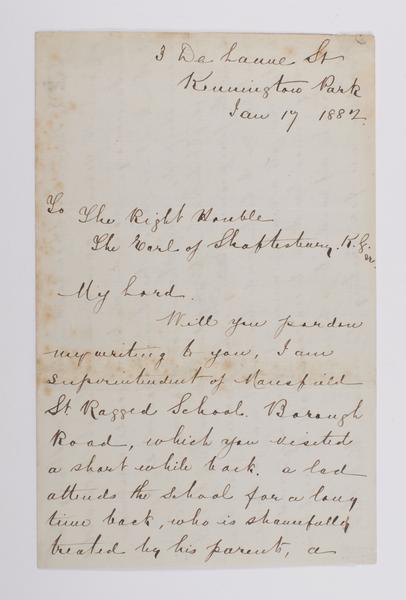 3 De Laune St
Kennington Park
Jan 17 1882.
To
The Right Honble
The Earl of Shaftesbury. K.G.
My Lord.
Will you pardon
my writing to you, I am
superintendent of Mansfield
St. Ragged School. Borough
Road, which you visited
a short while back. a lad
attends the school for a long
time back, who is shamefully
treated by his parents, a